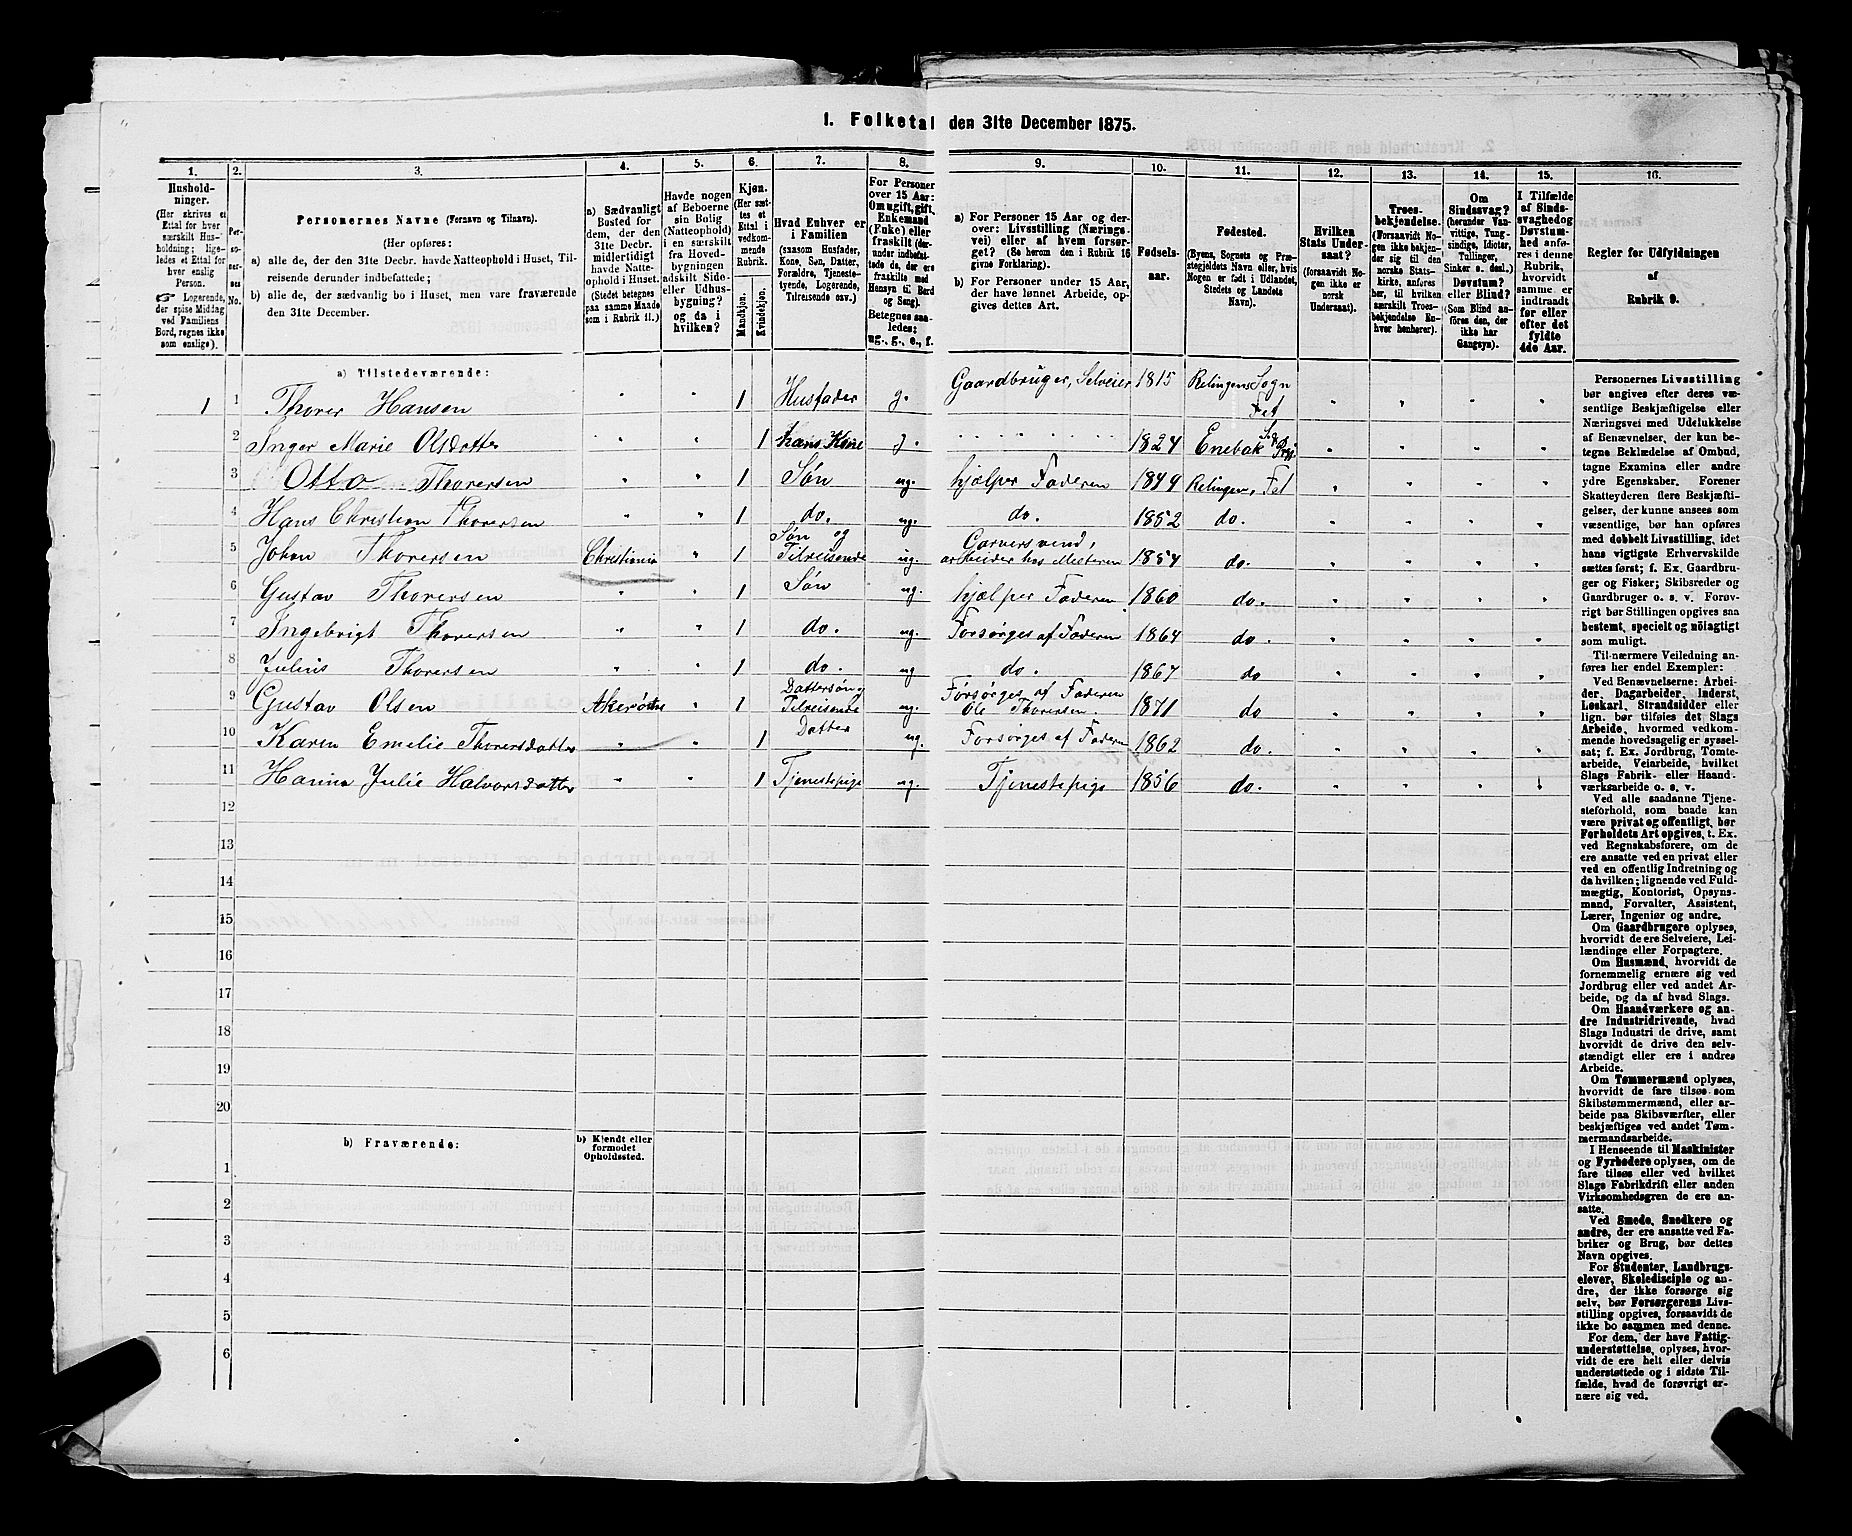 1. Folketal den 31te December 1875.
1. 2. 3. 4. 5. 6. 7. 8. 9. 10. 11. 12. 13. 14. 15. 16.
Hushold-
ninger.
(Her skrives et
Ettal for hver
særskilt Hus-
holdning; lige-
ledes et Ettal for
hver enslig
Person.
☞ Logerende,
der spise Middag
ved Familiens
Bord, regnes ikke
som enslige).
Per-
so-
ner-
nes
No.
Personernes Navne (Fornavn og Tilnavn).
(Her opføres:
a) alle de, der den 31te Decbr. havde Natteophold i Huset, Til-
reisende derunder indbefattede;
b) alle de, der sædvanlig bo i Huset, men vare fraværende
den 31te December.
a) Sædvanligt
Bosted for
dem, der den
31te Decbr.
midlertidigt
havde Natte-
ophold i Huset.
(Stedet betegnes
paa samme Maade
som i Rubrik 11.)
Havde nogen
af Beboerne
sin Bolig
(Natteophold)
i en særskilt
fra Hoved-
bygningen
adskilt Side-
eller Udhus-
bygning?
og da i
hvilken?
Kjøn.
(Her sæt-
tes et
Ettal i
vedkom-
mende
Rubrik.
Mandkjøn.
Kvindekjøn.
Hvad Enhver er
i Familien
(saasom Husfader,
Kone, Søn, Datter,
Forældre, Tjeneste-
tyende, Logerende,
Tilreisende osv.)
For Personer
over 15 Aar:
Om ugift, gift,
Enkemand
(Enke) eller
fraskilt (der-
under indbefat-
tede de, der ere
fraskilte med
Hensyn til Bord
og Seng).
Betegnes saa-
ledes:
ug., g., e., f.
a) For Personer 15 Aar og der-
over: Livsstilling (Nærings-
vei) eller af hvem forsør-
get? (Se herom den i Rubrik 16
givne Forklaring).
b) For Personer under 15 Aar,
der have lønnet Arbeide, op-
gives dettes Art.
Fødsels-
aar.
Fødested.
(Byens, Sognets og Præ-
stegjeldets Navn eller, hvis
Nogen er født i Udlandet,
Stedets og Landets
Navn).
Hvilken
Stats Under-
saat?
(forsaavidt No-
gen ikke er
norsk
Undersaat).
Troes-
bekjendelse.
(Forsaavidt No-
gen ikke bekjen-
der sig til den
norske Stats-
kirke, anføres
her, til hvilken
særskilt Troes-
bekjendelse En-
hver henhører).
Om
Sindssvag?
(herunder Van-
vittige, Tung-
sindige, Idioter,
Tullinger,
Sinker o. desl.)
Døvstum?
eller Blind?
(Som Blind an-
føres den, der
ikke har
Gangsyn).
I Tilfælde
af Sinds-
svaghed og
Døvstum-
hed anfø-
res i denne
Rubrik,
hvorvidt
samme er
indtraadt
før eller
efter det
fyldte
4de Aar.
Regler for Udfyldningen
af
Rubrik 9.
a) Tilstedeværende:
1 1 Thorer Hansen " " 1 Husfader g. Gaardbruger, Selveier 1815 Relingens Sogn Fet " " " "
2 Inger Marie Olsdatter " " 1 hans Kone g. " 1824 Enebak S. & Prgj. " " " "
3 Otto Thorersen " " 1 Søn ug. hjælper Faderen 1849 Relingen, Fet " " " "
4 Hans Christian Thorersen " " 1 do. ug. do. 1852 do. " " " "
5 Johan Thorersen Christiania " 1 Søn og Tilreisende ug. Garversvend, arbeider hos Mesteren 1854 do. " " " "
6 Gustav Thorersen " " 1 Søn ug. hjælper Faderen 1860 do. " " " "
7 Ingebrigt Thorersen " " 1 do. ug. Forsørges af Faderen 1864 do. " " " "
8 Julius Thorersen " " 1 do. ug do. 1867 do " " " "
9 Gustav Olsen " 1 Dattersøn, Tilreisende ug. Forsørges af Faderen Ole Thorersen. 1871 do " " " "
10 Karen Emelie Thorersdatter " " 1 Datter ug. Forsørges af Faderen 1862 do. " " " "
11 Hanna Julie Halvorsdatter " " 1 Tjenestepige ug. Tjenestepige 1856 do. " " " "
12
13
14
15
16
17
18
19
20
b) Fraværende:
b) Kjendt eller
formodet
Opholdssted.
1
2
3
4
5
6
Personernes Livsstilling
bør angives efter deres væ-
sentlige Beskjæftigelse eller
Næringsvei med Udelukkelse
af Benævnelser, der kun be-
tegne Beklædelse af Ombud,
tagne Examina eller andre
ydre Egenskaber. Forener
Skatteyderen flere Beskjæfti-
gelser, der kunne ansees som
væsentlige, bør han opføres
med dobbelt Livsstilling, idet
hans vigtigste Erhvervskilde
sættes først; f. Ex. Gaardbru-
ger og Fisker; Skibsreder og
Gaardbruger o. s. v. Forøv-
rigt bør Stillingen opgives saa
bestemt, specielt og nøiagtigt
som muligt.
Til nærmere Veiledning an-
føres her endel Exempler:
Ved Benævnelserne: Arbei-
der, Dagarbeider, Inderst,
Løskarl, Strandsidder eller
lign. bør tilføies det Slags
Arbeide, hvormed vedkom-
mende hovedsagelig er syssel-
sat; f. Ex. Jordbrug, Tomte-
arbeide, Veiarbeide, hvilket
Slags Fabrik- eller Haand-
værksarbeide o. s. v.
Ved alle saadanne Tjene-
steforhold, som baade kan
være privat og offentligt, bør
Forholdets Art opgives, t. Ex.
ved Regnskabsførere, om de
ere ansatte ved en privat eller
ved en offentlig Indretning og
da hvilken; lignende ved Fuld-
mægtig, Kontorist, Opsyns-
mand, Forvalter, Assistent,
Lærer, Ingeniør og andre.
Om Gaardbrugere oplyses,
hvorvidt de ere Selveiere, Lei-
lændinge eller Forpagtere.
Om Husmænd, hvorvidt de
fornemmelig ernære sig ved
Jordbrug eller ved andet Ar-
beide, og da af hvad Slags.
Om Haandværkere og an-
dre Industridrivende, hvad
Slags Industri de drive, samt
hvorvidt de drive den selv-
stændigt eller ere i andres
Arbeide.
Om Tømmermænd oplyses,
hvorvidt de fare tilsøs som
Skibstømmermænd, eller ar-
beide paa Skibsværfter, eller
beskjæftiges ved andet Tøm-
mermandsarbeide.
I Henseende til Maskinister
og Fyrbødere oplyses, om de
fare tilsøs eller ved hvilket
Slags Fabrikdrift eller anden
Virksomhedsgren de ere an-
satte.
Ved Smede, Snedkere og
andre, der ere ansatte ved Fa-
briker og Brug, bør dettes
Navn opgives.
For Studenter, Landbrugs-
elever, Skoledisciple og an-
dre, der ikke forsørge sig
selv, bør Forsørgerens Livs-
stilling opgives, forsaavidt de
ikke bo sammen med denne.
For dem, der have Fattig-
understøttelse, oplyses, hvor-
vidt de ere helt eller delvis
understøttede og i sidste Til-
fælde, hvad de forøvrigt er-
nære sig ved.